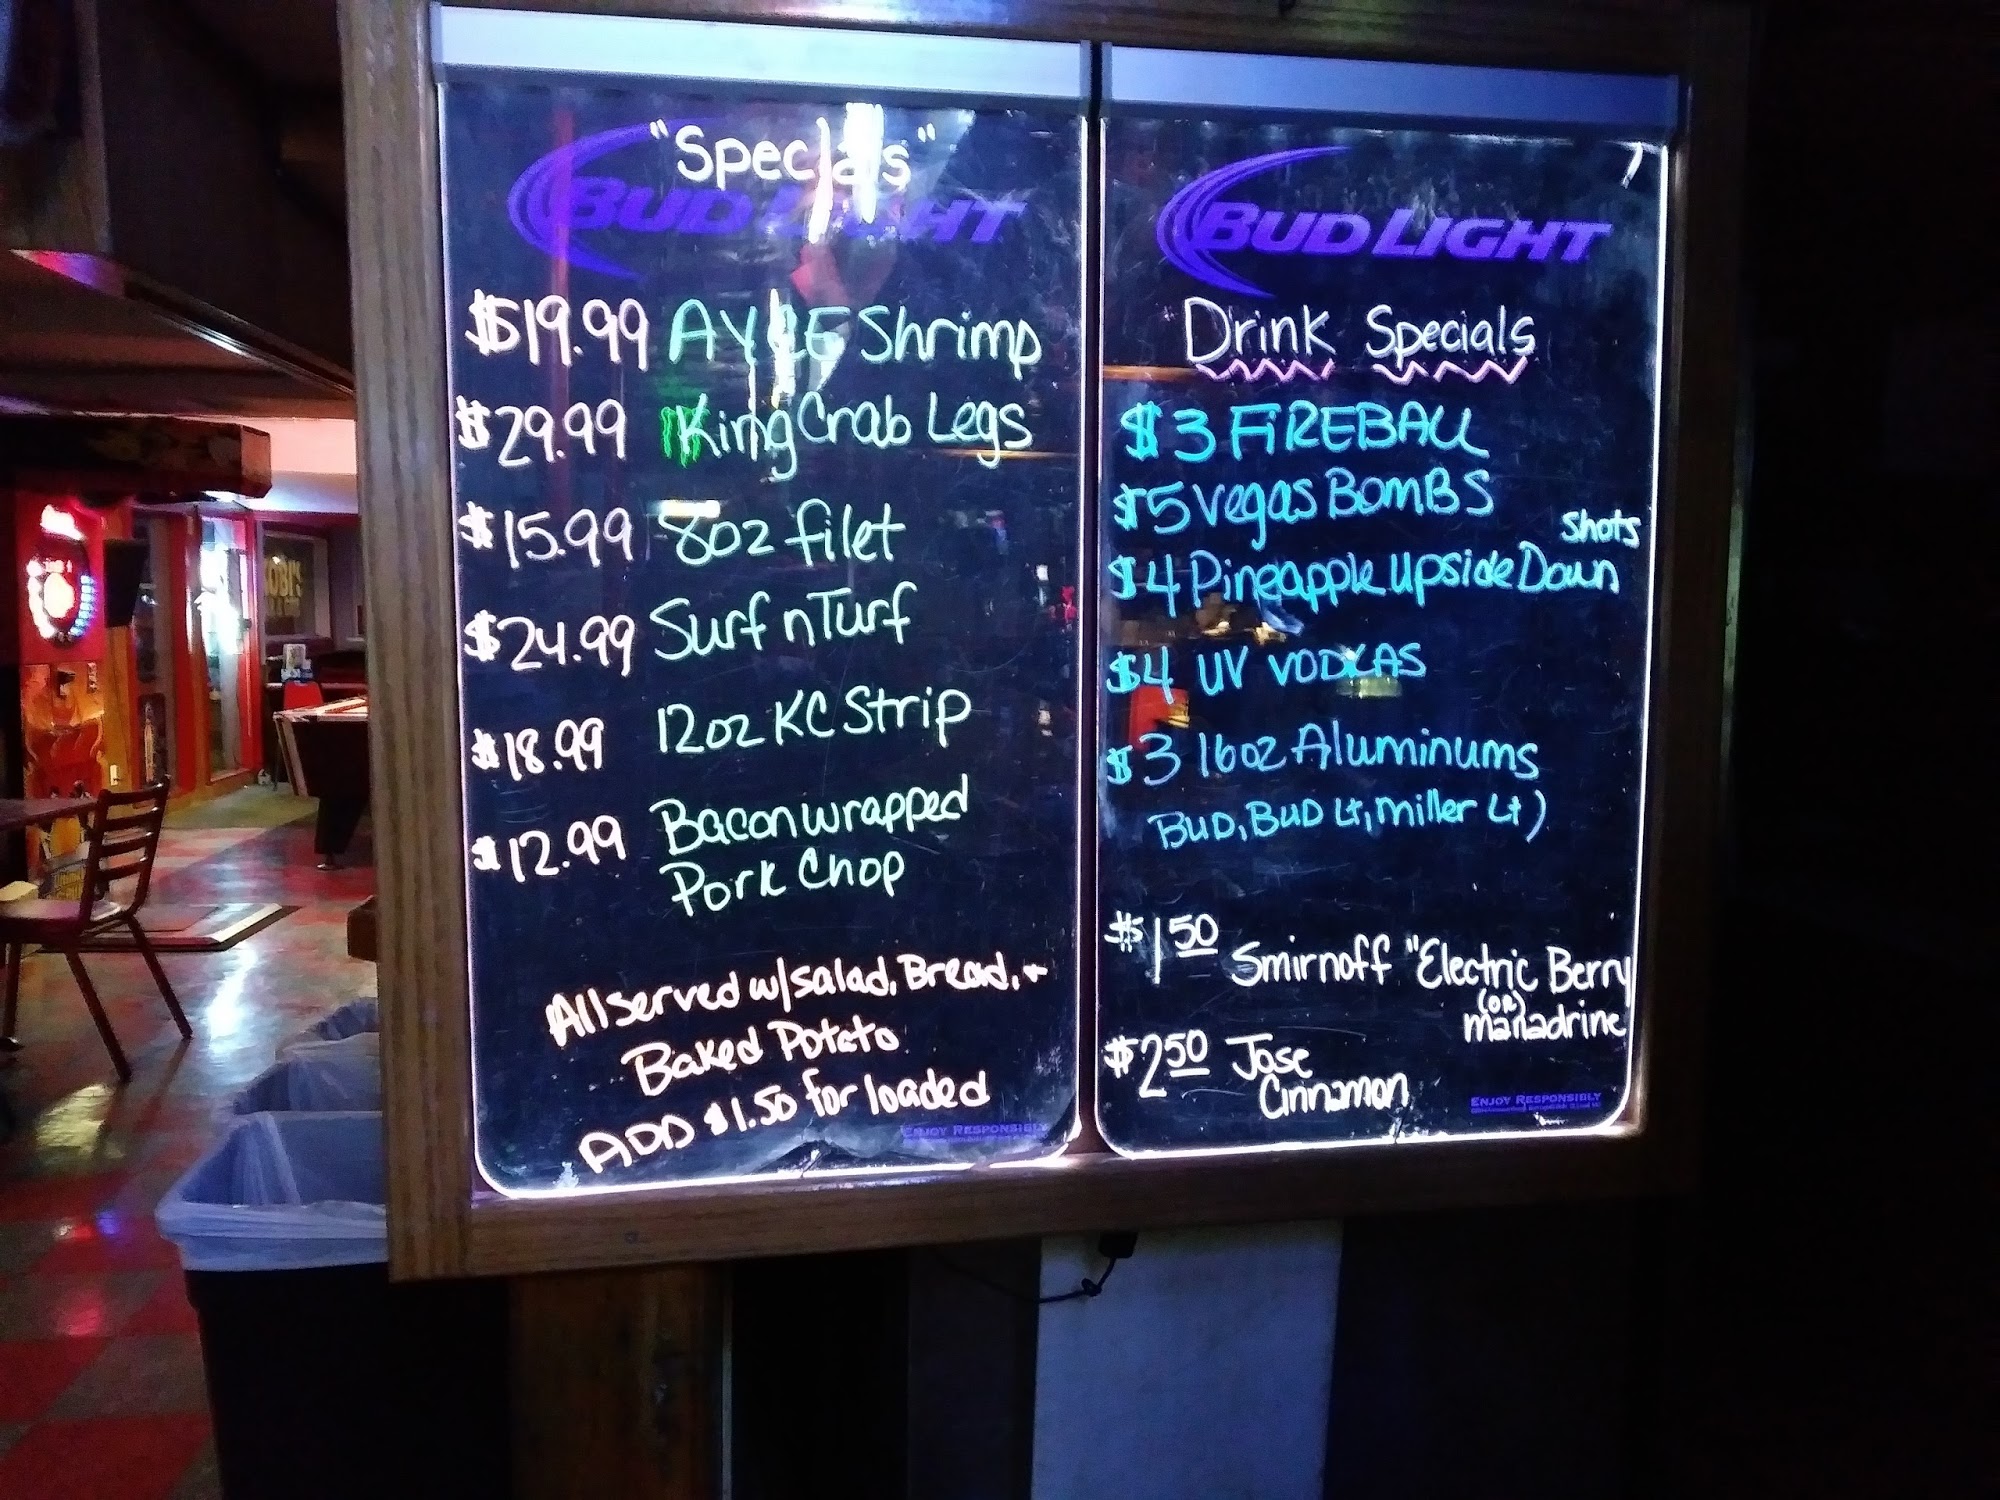 "Specials"
BUD LIGHT
$19.99 AYCE Shrimp
$29.99 King Crab Legs
$15.99 8oz filet
$24.99 Surf n Turf
$18.99 12oz KC Strip
$12.99 Bacon wrapped
Pork Chop
All served w/salad, Bread, +
Baked Potato
ADD $1.50 for loaded
ENJOY RESPONSIBLY
BUD LIGHT
Drink Specials
$3 FiREBALL
$5 Vegas BomBS
shots
$4 Pineapple Upside Down
$4 UV VODKAS
$3 16oz Aluminums
BUD, BUD Lt, miller Lt)
$1 50 Smirnoff "Electric Berry
(OR)
manadrine
$2 50 Jose
Cinnamon
ENJOY RESPONSIBLY